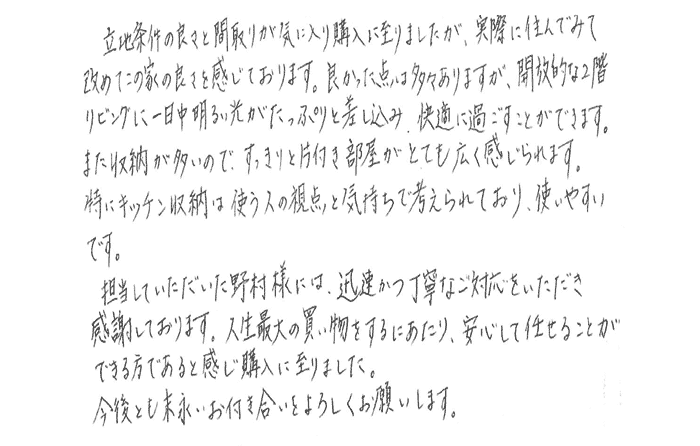 立地条件の良さと間取りが気に入り購入に至りましたが、実際に住んでみて
改めてこの家の良さを感じております。良かった点は多々ありますが、開放的な2階
リビングに一日中明るい光がたっぷりと差し込み、快適に過ごすことができます。
また収納が多いので、すっきりと片付き部屋がとても広く感じられます。
特にキッチン収納は使う人の視点と気持ちで考えられており、使いやすい
です。
担当していただいた野村様には、迅速かつ丁寧なご対応をいただき
感謝しております。人生最大の買い物をするにあたり、安心して任せることが
できる方であると感じ購入に至りました。
今後とも末永いお付き合いをよろしくお願いします。